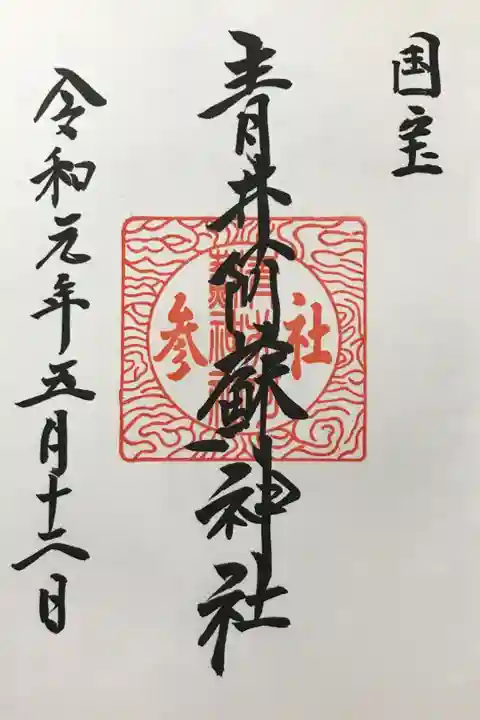 国宝
青井阿蘇神社
社参
青井阿蘇神社
令和元年五月十二日